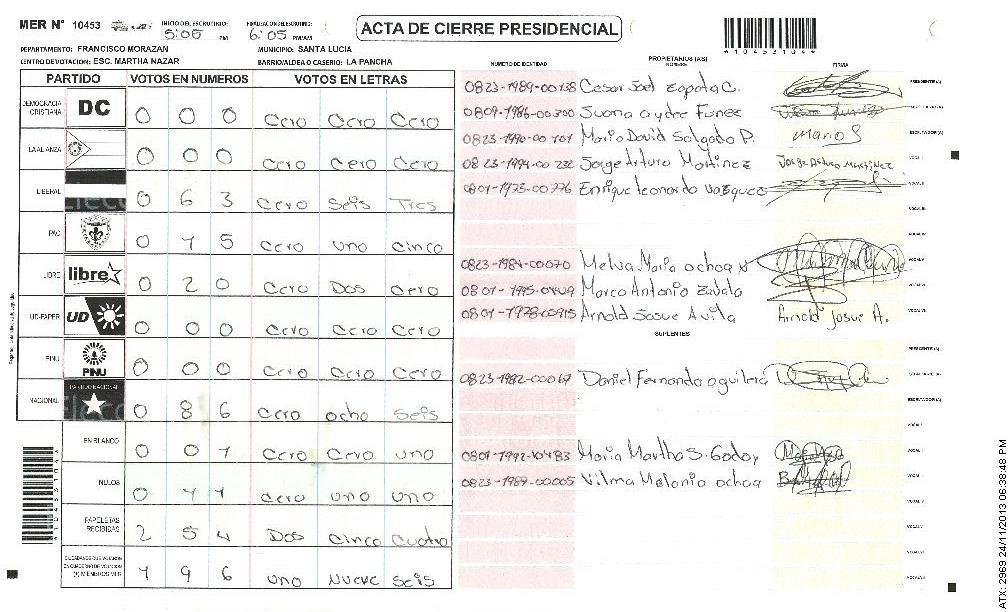 MER N° 10453 INICIO DEL ESCRUTINIO: 5:00 PM FINALIZACION DEL ESCRUTINIO: 6:05 PM/AM ACTA DE CIERRE PRESIDENCIAL *10453104*
DEPARTAMENTO: FRANCISCO MORAZAN MUNICIPIO: SANTA LUCIA
CENTRO DE VOTACION: ESC. MARTHA NAZAR BARRIO/ALDEA O CASERIO: LA PANCHA
PARTIDO VOTOS EN NUMEROS VOTOS EN LETRAS NUMERO DE IDENTIDAD PROPIETARIOS (AS) NOMBRE FIRMA
DEMOCRACIA CRISTIANA DC 0 0 0 Cero Cero Cero
LA ALIANZA 0 0 0 Cero Cero Cero
LIBERAL 0 6 3 Cero Seis Tres
PAC 0 1 5 Cero uno cinco
LIBRE libre 0 2 0 Cero Dos Cero
UD-FAPER UD 0 0 0 Cero Cero Cero
PINU PINU 0 0 0 Cero Cero Cero
NACIONAL PARTIDO NACIONAL 0 8 6 Cero ocho Seis
EN BLANCO 0 0 1 Cero Cero uno
NULOS 0 1 1 Cero uno uno
PAPELETAS RECIBIDAS 2 5 4 Dos Cinco Cuatro
CIUDADANOS QUE VOTARON EN CUADERNO DE VOTACION (+) MIEMBROS MER 1 9 6 uno Nueve Seis
0823-1989-00138 Cesar Joel Zapata C. PRESIDENTE (A)
0809-1986-00300 Juana aydre Funez SECRETARIO (A)
0823-1990-00101 Mario David Salgado P. Mario S ESCRUTADOR (A)
0823-1994-00232 Jorge Arturo Martinez Jorge Arturo Martinez VOCAL I
0801-1973-00776 Enrique leonardo Vasquez VOCAL II
VOCAL III
VOCAL IV
0823-1984-00070 Melva Maria ochoa VOCAL V
Marco Antonio Zavala VOCAL VI
0801-1978-00915 Arnold Josue Avila Arnold Josue A. VOCAL VII
SUPLENTES
PRESIDENTE (A)
0823-1982-00067 Daniel Fernando aguilera SECRETARIO (A)
ESCRUTADOR (A)
VOCAL I
Maria Martha S. Godoy
0823-1989-00005 Vilma Melania ochoa
ATX: 2969 24/11/2013 06:38:48 PM